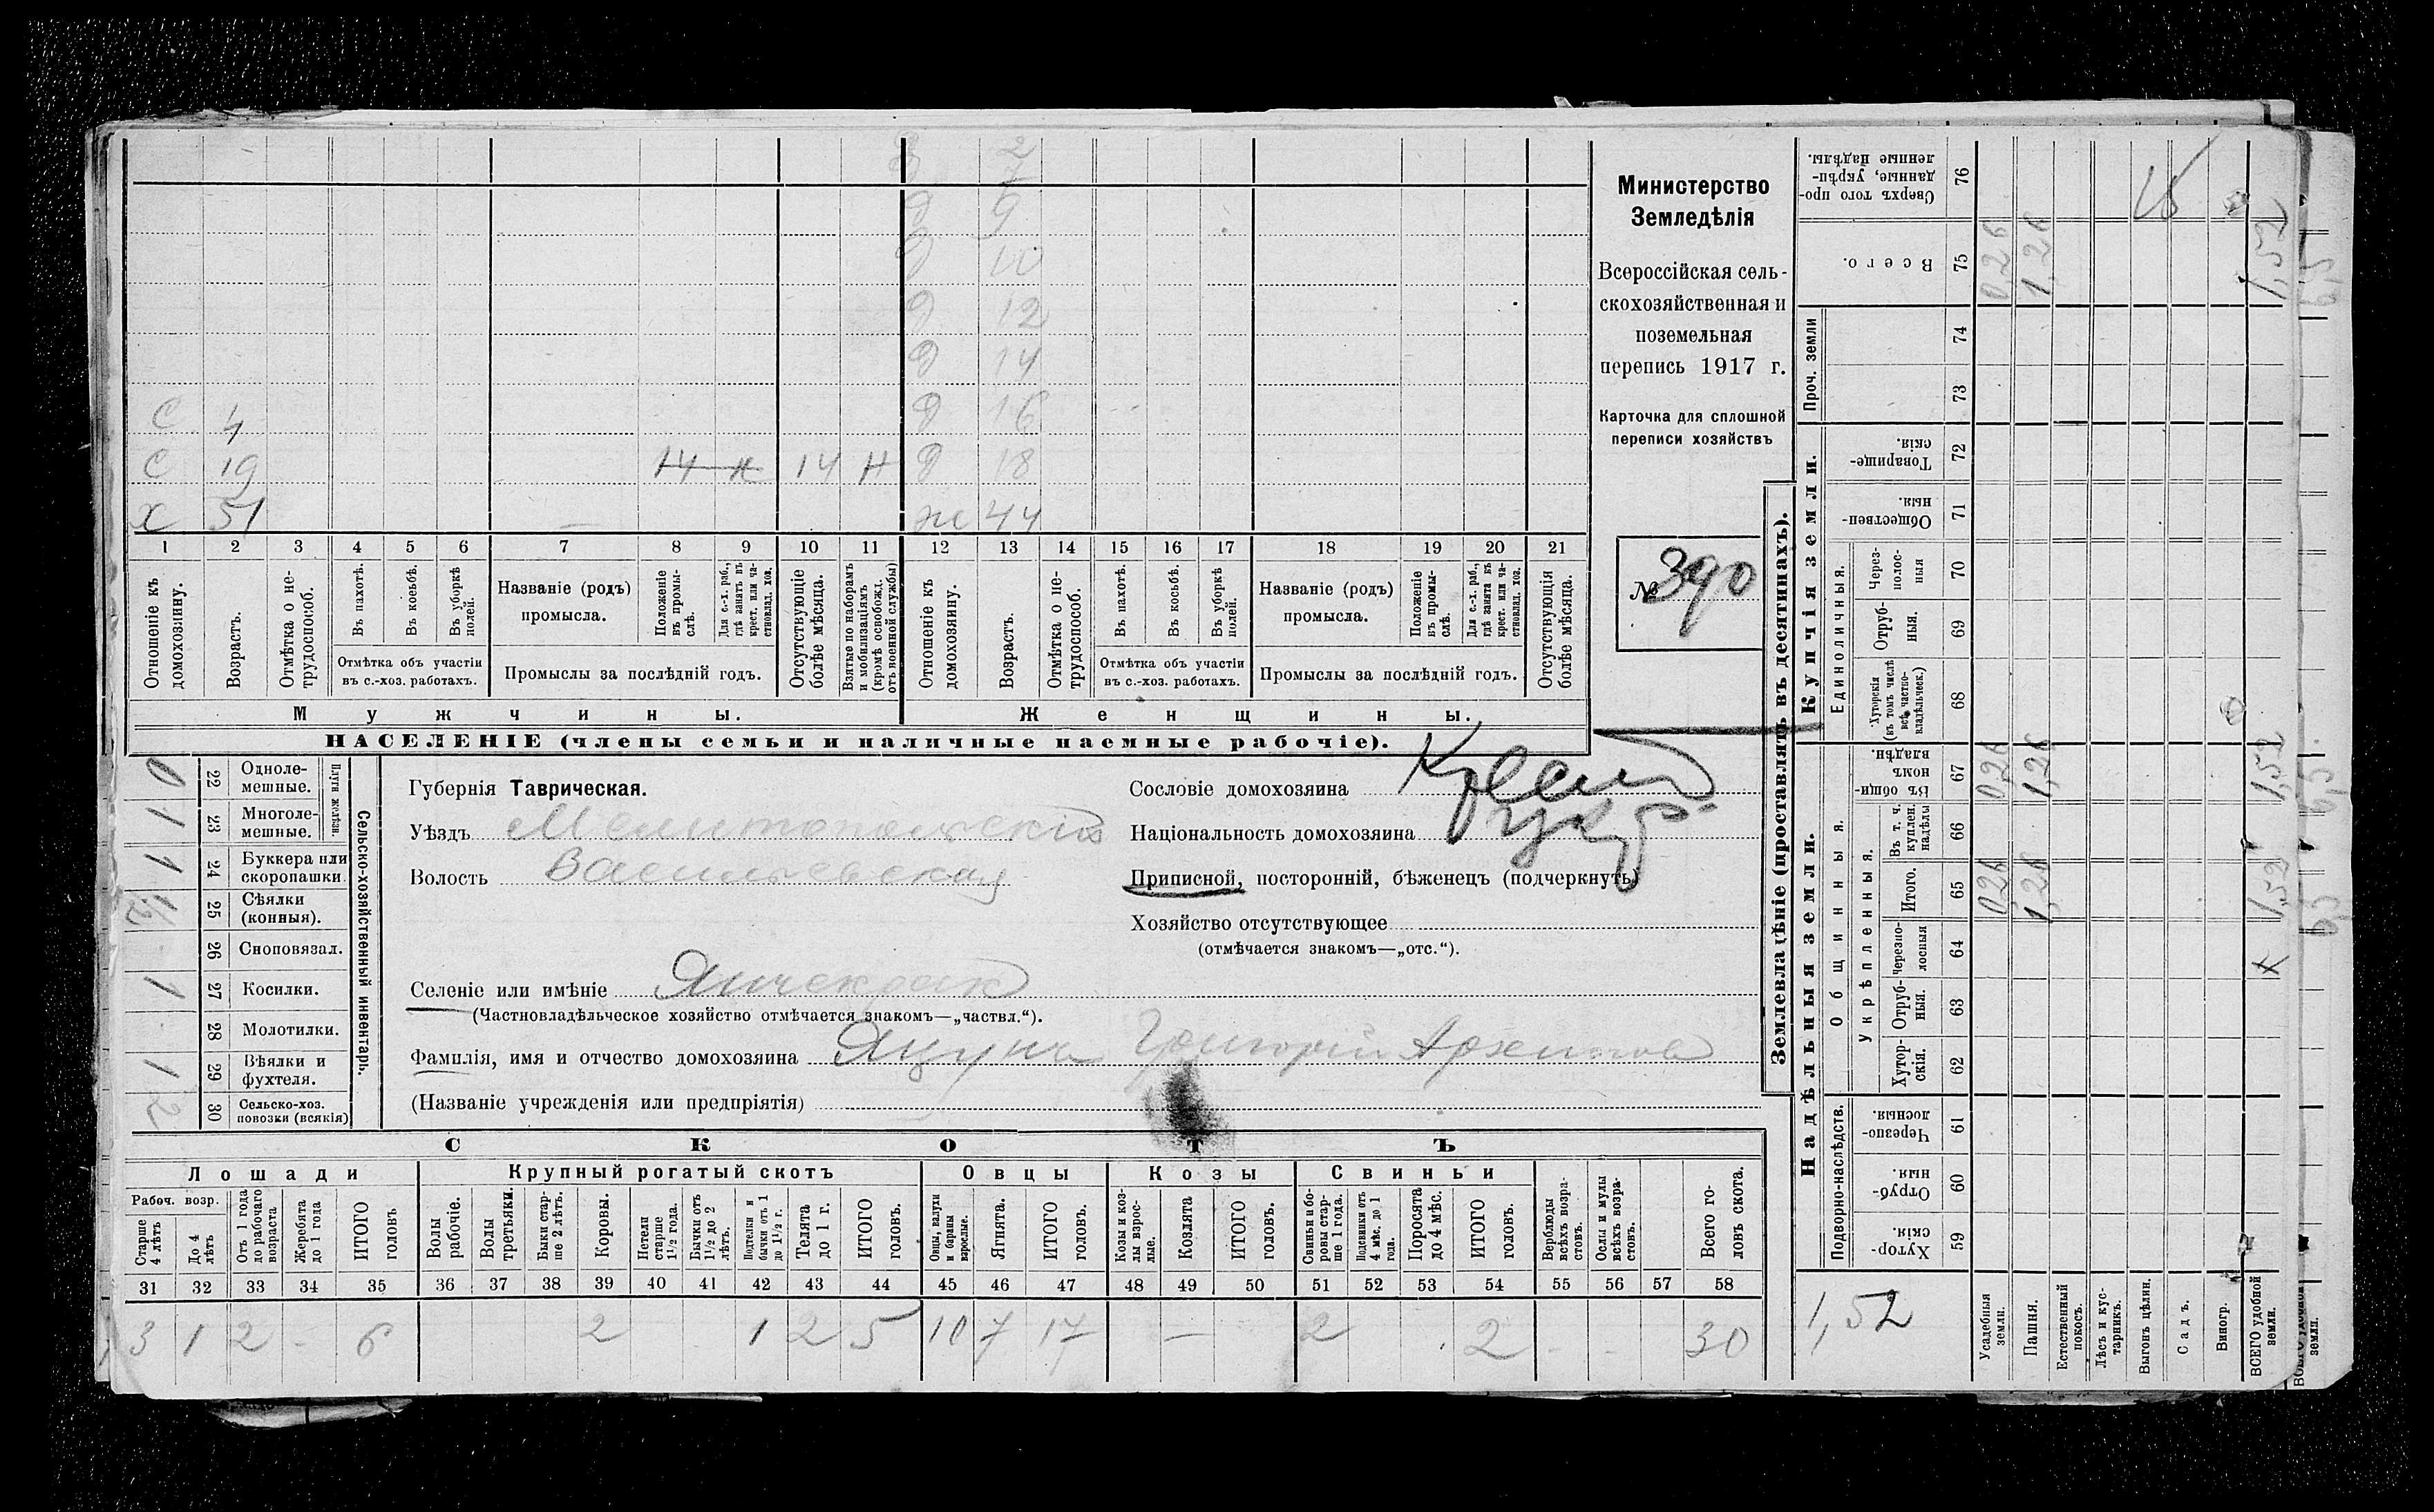 З 2
Д 9
Д 10
Д 12
Д 14
С 4 Д 16
С 19 14 н 14 Н Д 18
Х 51 ж 44
1 2 3 4 5 6 7 8 9 10 11 12 13 14 15 16 17 18 19 20 21
Отношеніе къ домохозяину.
Возрастъ.
Отмѣтка о не-трудоспособ.
Въ пахотѣ.
Въ косьбѣ.
Въ уборкѣ полей.
Отмѣтка объ участіи
въ с.-хоз. работахъ.
Названіе (родъ)
промысла.
Положеніе въ промы-слѣ.
Для с.-х. раб., гдѣ занятъ въ крест. или ча-стновлад. хоз.
Промыслы за послѣдній годъ.
Отсутствующіе болѣе мѣсяца.
Взятые по наборамъ и мобилизаціямъ (кромѣ освобожд. отъ военной службы)
Отношеніе къ домохозяину.
Возрастъ.
Отмѣтка о не-трудоспособ.
Въ пахотѣ.
Въ косьбѣ.
Въ уборкѣ полей.
Отмѣтка объ участіи
въ с.-хоз. работахъ.
Названіе (родъ)
промысла.
Положеніе въ промы-слѣ.
Для с.-х. раб., гдѣ занята въ крест. или ча-стновлад. хоз.
Промыслы за послѣдній годъ.
Отсутствующія болѣе мѣсяца.
Мужчины. Женщины.
НАСЕЛЕНІЕ (члены семьи и наличные наемные рабочіе).
Министерство
Земледѣлія
Всероссійская сель-
скохозяйственная и
поземельная
перепись 1917 г.
Карточка для сплошной
переписи хозяйствъ
№ 390
Сельско-хозяйственный инвентарь.
Плуги желѣзн.
0 22 Одноле-мешные.
1 23 Многоле-мешные.
1 24 Буккера или скоропашки.
1/2 25 Сѣялки (конныя).
26 Сноповязал.
1 27 Косилки.
28 Молотилки.
1 29 Вѣялки и фухтеля.
2 30 Сельско-хоз. повозки (всякія)
Губернія Таврическая.
Уѣздъ Мелитопольскій
Волость Васильевская
Селеніе или имѣніе Янчекрак
(Частновладѣльческое хозяйство отмѣчается знакомъ—„частвл.“).
Фамилія, имя и отчество домохозяина Яцуна Григорій Архипов
(Названіе учрежденія или предпріятія)
Сословіе домохозяина Крест
Національность домохозяина
Приписной, посторонній, бѣженецъ (подчеркнуть)
Хозяйство отсутствующее
(отмѣчается знакомъ—„отс.“).
СКОТЪ
Лошади Крупный рогатый скотъ Овцы Козы Свиньи
Рабоч. возр.
Старше 4 лѣтъ
До 4 лѣтъ
Отъ 1 года до рабочаго возраста
Жеребята до 1 года
ИТОГО головъ
Волы рабочіе.
Волы третьяки.
Быки стар-ше 2 лѣтъ.
Коровы.
Нетели старше 1½ года.
Бычки отъ 1½ до 2 лѣтъ.
Подтелки и бычки отъ 1 до 1½ г.
Телята до 1 г.
ИТОГО головъ.
Овцы, валухи и бараны взрослые.
Ягнята.
ИТОГО головъ.
Козы и коз-лы взрос-лые.
Козлята
ИТОГО головъ.
Свиньи и бо-ровы стар-ше 1 года.
Подсвинки отъ 4 мѣс. до 1 года.
Поросята до 4 мѣс.
ИТОГО головъ.
Верблюды всѣхъ возра-стовъ.
Ослы и мулы всѣхъ возра-стовъ.
Всего го-ловъ скота.
31 32 33 34 35 36 37 38 39 40 41 42 43 44 45 46 47 48 49 50 51 52 53 54 55 56 57 58
3 1 2 - 6 2 1 2 5 10 7 17 — 2 2 - - 30
Землевладѣніе (проставлять въ десятинахъ).
Надѣльныя земли. Купчія земли.
Проч. земли
Подворно-наслѣдств.
Общинныя.
Укрѣпленныя.
Единоличныя.
Сверхъ того про-данные, укрѣп-ленные надѣлы. 76
Всего. 75
74
73
Товарище-скія. 72
Обществен-ныя. 71
Через-полос-ныя 70
Отруб-ныя. 69
Хуторскія (въ томъ числѣ всѣ частно-владѣльческ.) 68
Въ общи-номъ владѣн. 67
Въ т. ч. куплен. надѣлы 66
Итого. 65
Черезпо-лосныя 64
Отруб-ныя. 63
Хутор-скія. 62
Черезпо-лосныя. 61
Отруб-ныя. 60
Хутор-скія. 59
Усадебныя земли.
Пашня.
Естественный покосъ.
Лѣсъ и кус-тарникъ.
Выгонъ цѣлин.
Садъ.
Виногр.
ВСЕГО удобной земли.
0,26 1,26 1,52
0,26 1,26 1,52
0,26 1,26 1,52
1,52
6,5
6,5
6,5